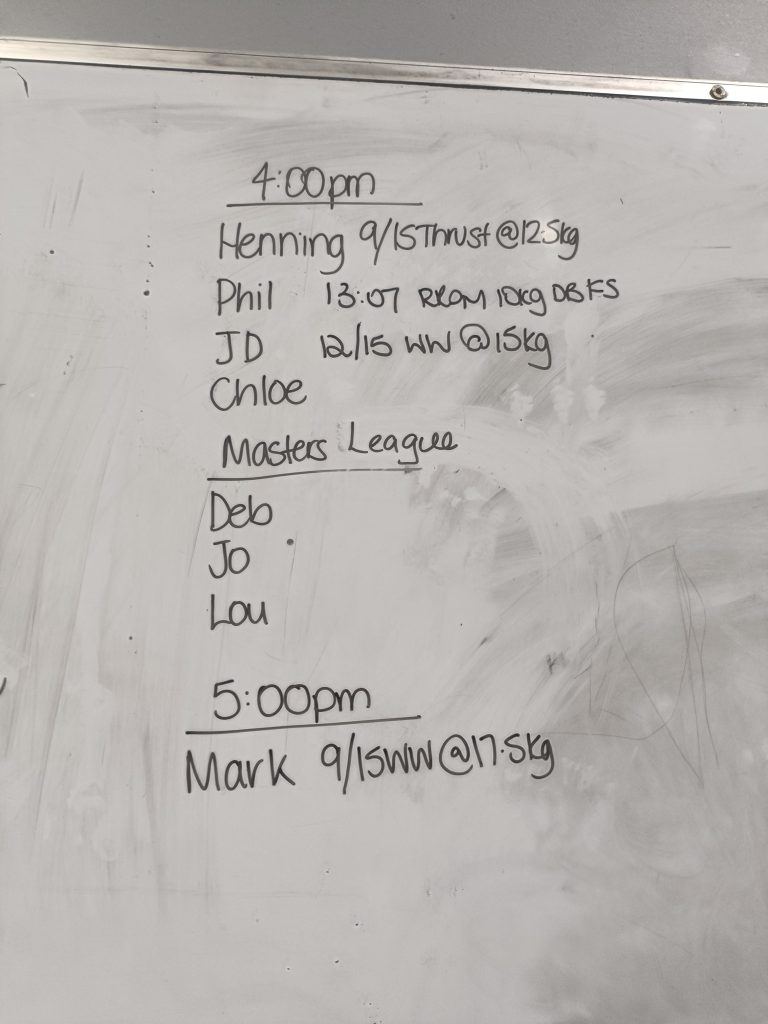 4:00pm
Henning 9/15 Thrust @12.5kg
Phil 13:07 RROM 10kg DB FS
JD 12/15 WW @15kg
Chloe
Masters League
Deb
Jo
Lou
5:00pm
Mark 9/15 WW @17.5kg